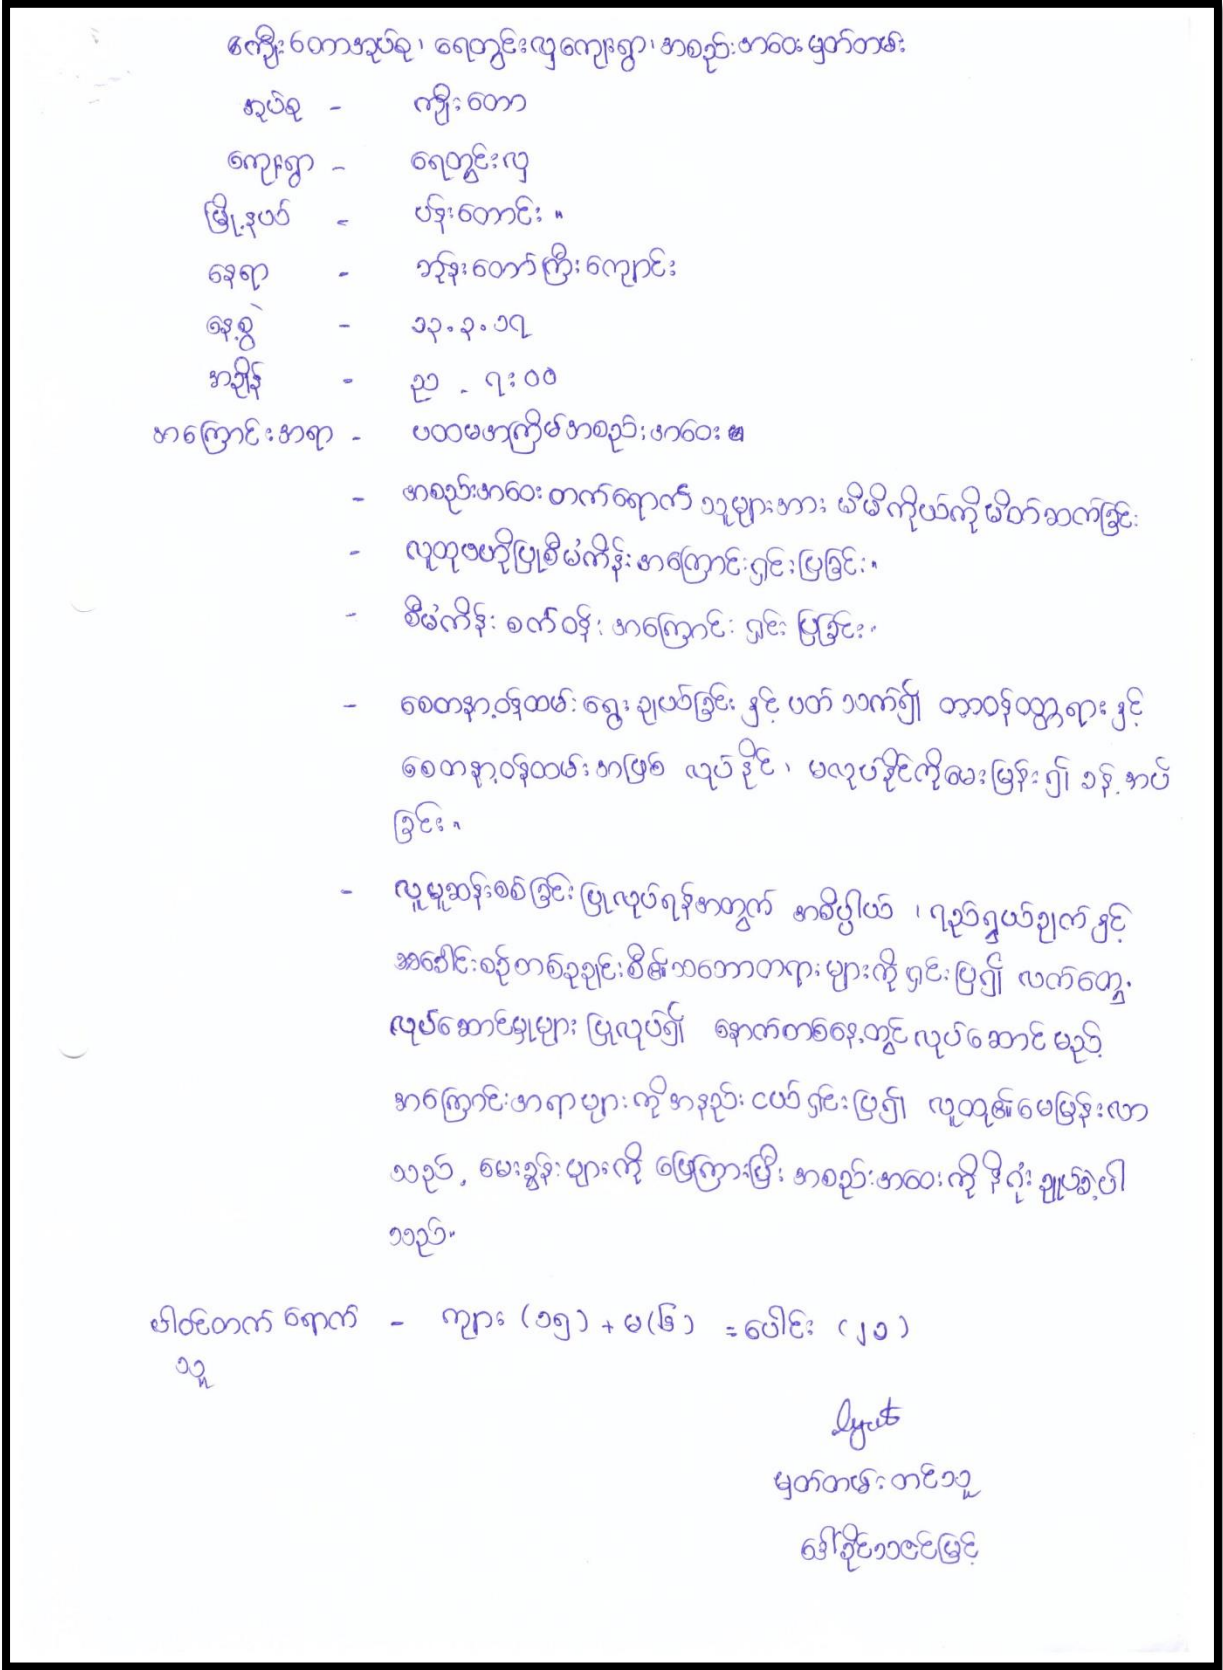 ကျီးတောအုပ်စု၊ ရေတွင်းလှကျေးရွာ၊ အစည်းအဝေးမှတ်တမ်း
အုပ်စု - ကျီးတော
ကျေးရွာ - ရေတွင်းလှ
မြို့နယ် - ပန်းတောင်း။
နေရာ - ဘုန်းတော်ကြီးကျောင်း
နေ့စွဲ - ၁၃.၃.၁၇
အချိန် - ည - ၇:၀၀
အကြောင်းအရာ - ပထမအကြိမ်အစည်းအဝေး
- အစည်းအဝေးတက်ရောက်သူများအား မိမိကိုယ်ကိုမိတ်ဆက်ခြင်း
- လူထုဗဟိုပြုစီမံကိန်းအကြောင်းရှင်းပြခြင်း။
- စီမံကိန်း စက်ဝန်း အကြောင်း ရှင်းပြခြင်း။
- စေတနာ့ဝန်ထမ်း ရွေးချယ်ခြင်းနှင့် ပတ်သက်၍ တာဝန်ဝတ္တရားနှင့်
စေတနာ့ဝန်ထမ်းအဖြစ် လုပ်နိုင်၊ မလုပ်နိုင်ကိုမေးမြန်း၍ ခန့်အပ်
ခြင်း။
- လူမှုဆန်းစစ်ခြင်းပြုလုပ်ရန်အတွက် အဓိပ္ပါယ်၊ ရည်ရွယ်ချက်နှင့်
အခေါင်းစဉ်တစ်ခုချင်းစီ၏သဘောတရားများကိုရှင်းပြ၍ လက်တွေ့
လုပ်ဆောင်မှုများ ပြုလုပ်၍ နောက်တစ်နေ့တွင်လုပ်ဆောင်မည့်
အကြောင်းအရာများကိုအနည်းငယ်ရှင်းပြ၍ လူထု၏မေမြန်းလာ
သည့် မေးခွန်းများကို ဖြေကြားပြီး အစည်းအဝေးကို နိဂုံးချုပ်ခဲ့ပါ
သည်။
ပါဝင်တက်ရောက် - ကျား (၁၅) + မ (၆) = ပေါင်း (၂၁)
သူ
မှတ်တမ်းတင်သူ
ဒေါ်ခိုင်သဇင်မြင့်